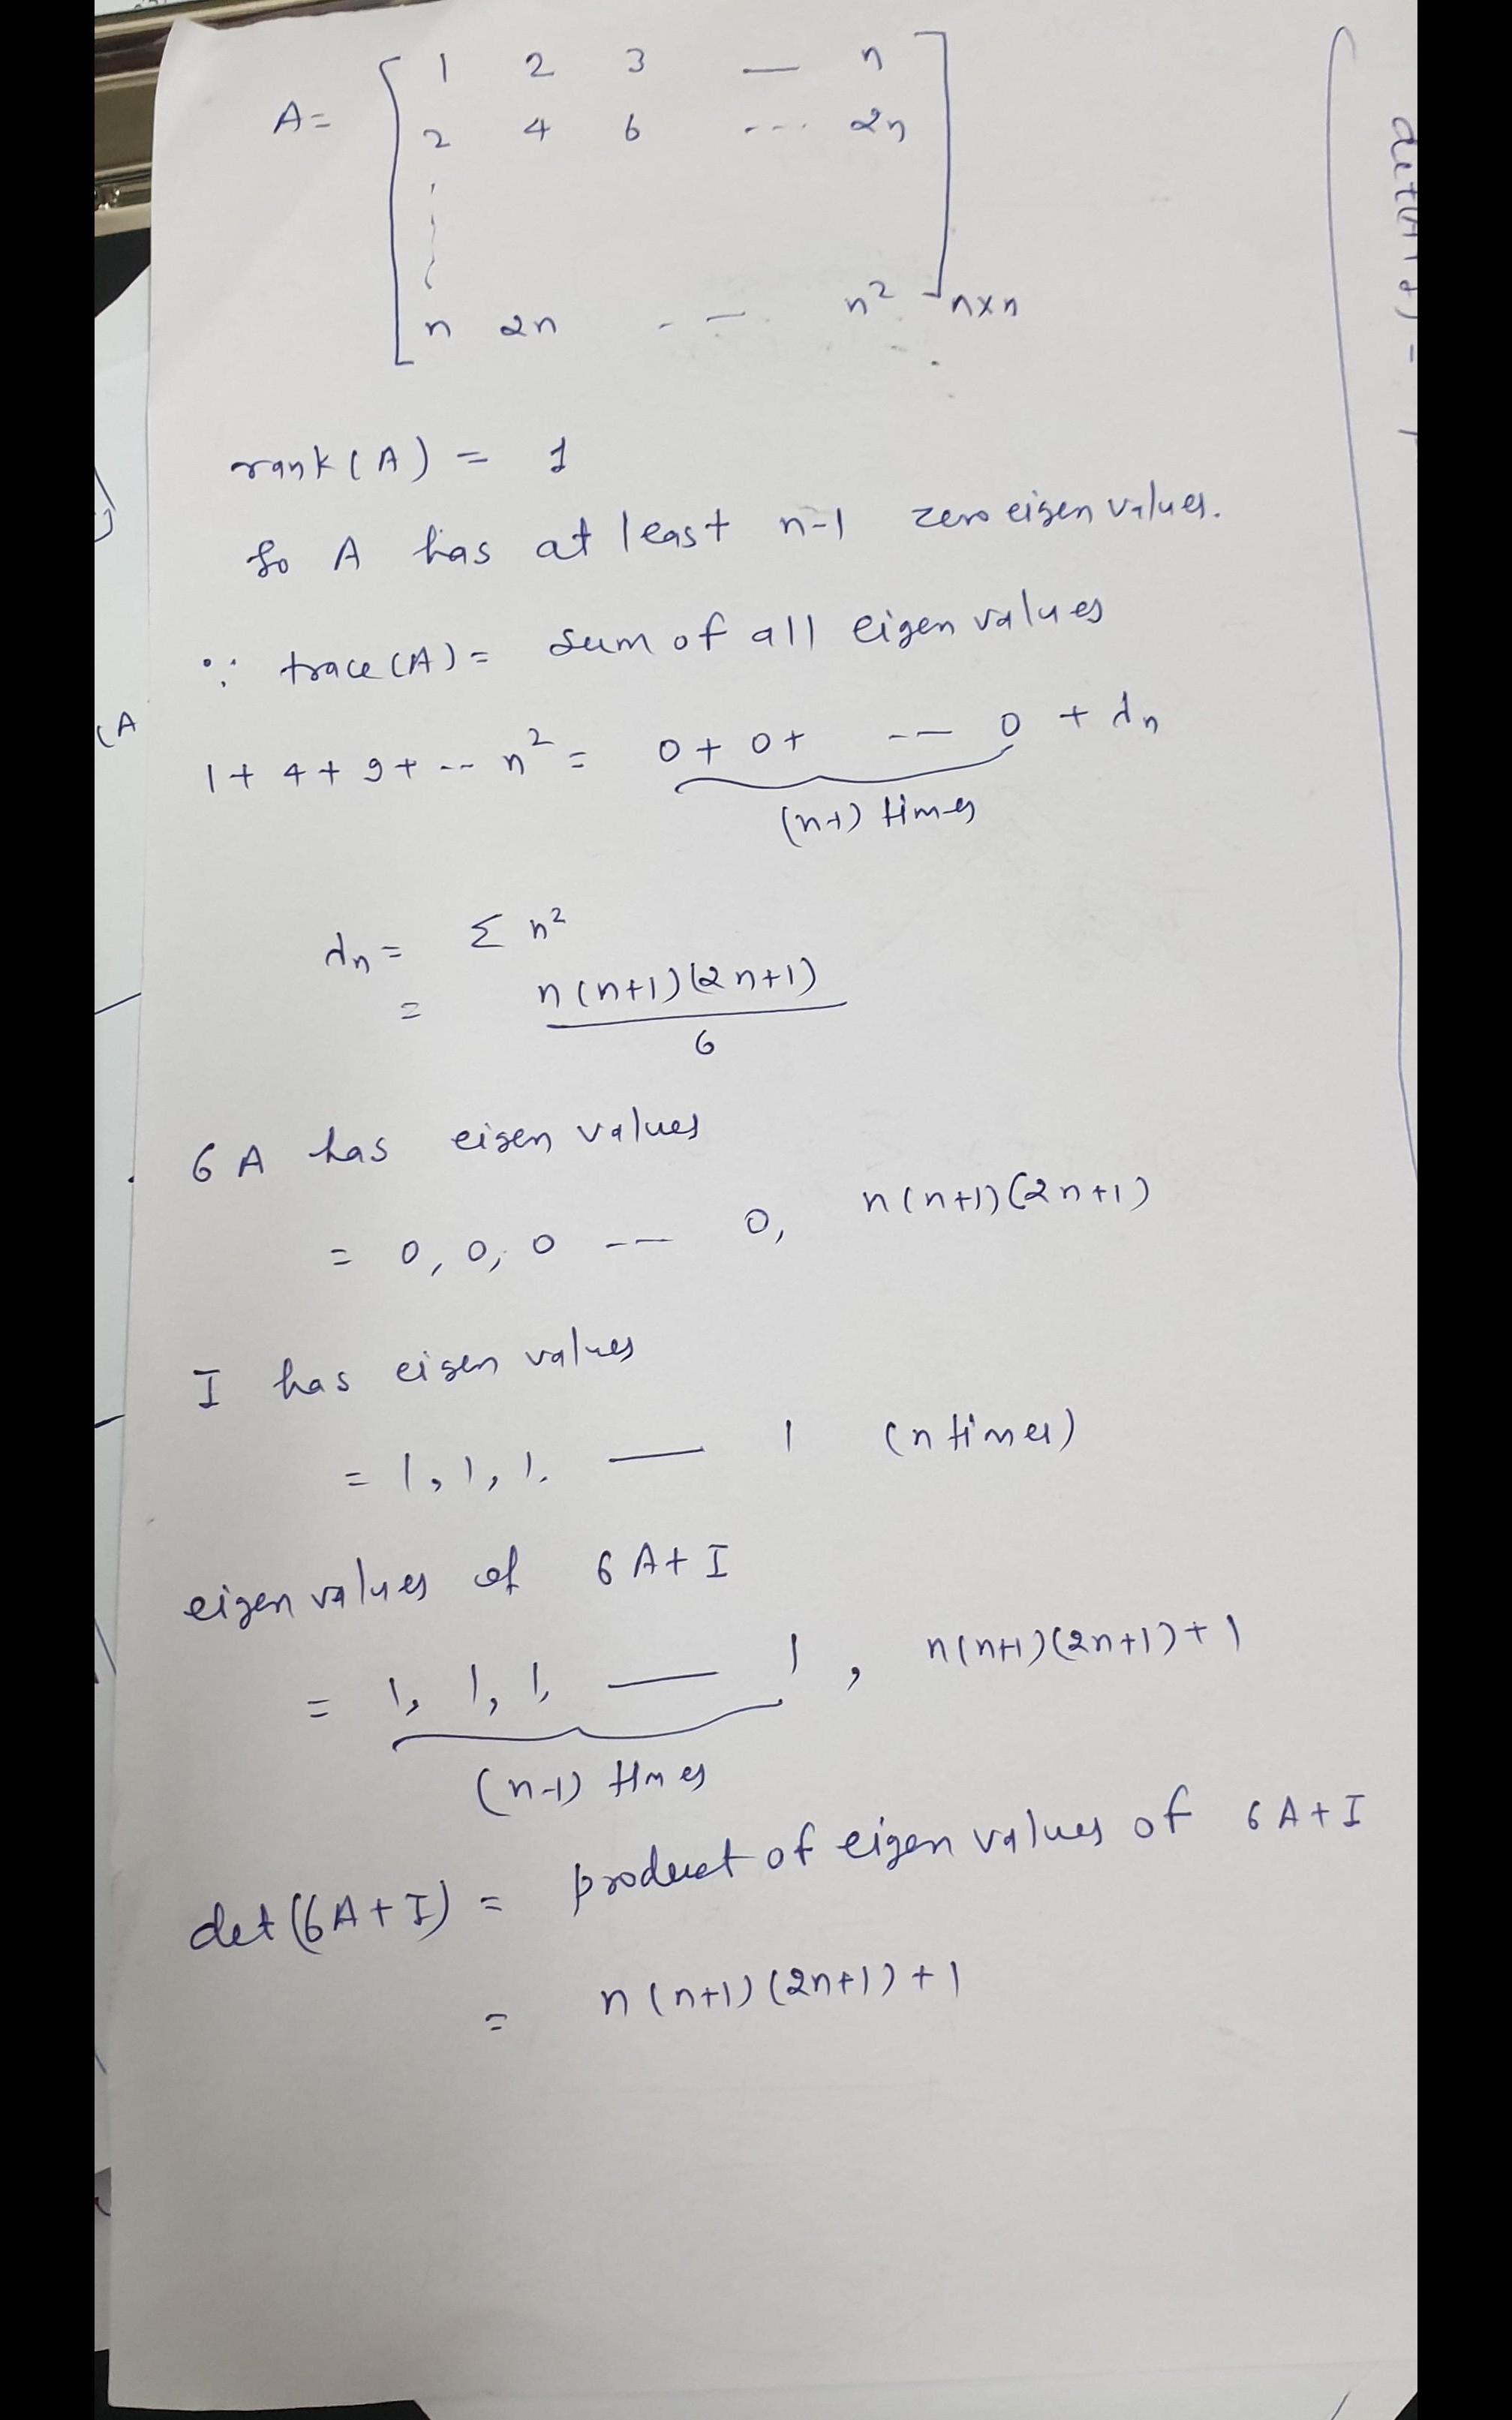 A = [ 1 2 3 — n
2 4 6 ---- 2n
n 2n - — n² ] n×n
rank(A) = 1
So A has at least n-1 zero eigen values.
∵ trace(A) = sum of all eigen values
1 + 4 + 9 + -- n² = 0 + 0 + -- 0 + λn
(n-1) times
λn = Σ n²
= n(n+1)(2n+1)
6
6A has eigen values
= 0, 0, 0 --- 0, n(n+1)(2n+1)
I has eigen values
= 1, 1, 1, — 1 (n times)
eigen values of 6A+I
= 1, 1, 1, — 1, n(n+1)(2n+1)+1
(n-1) times
det(6A+I) = product of eigen values of 6A+I
= n(n+1)(2n+1)+1
(A